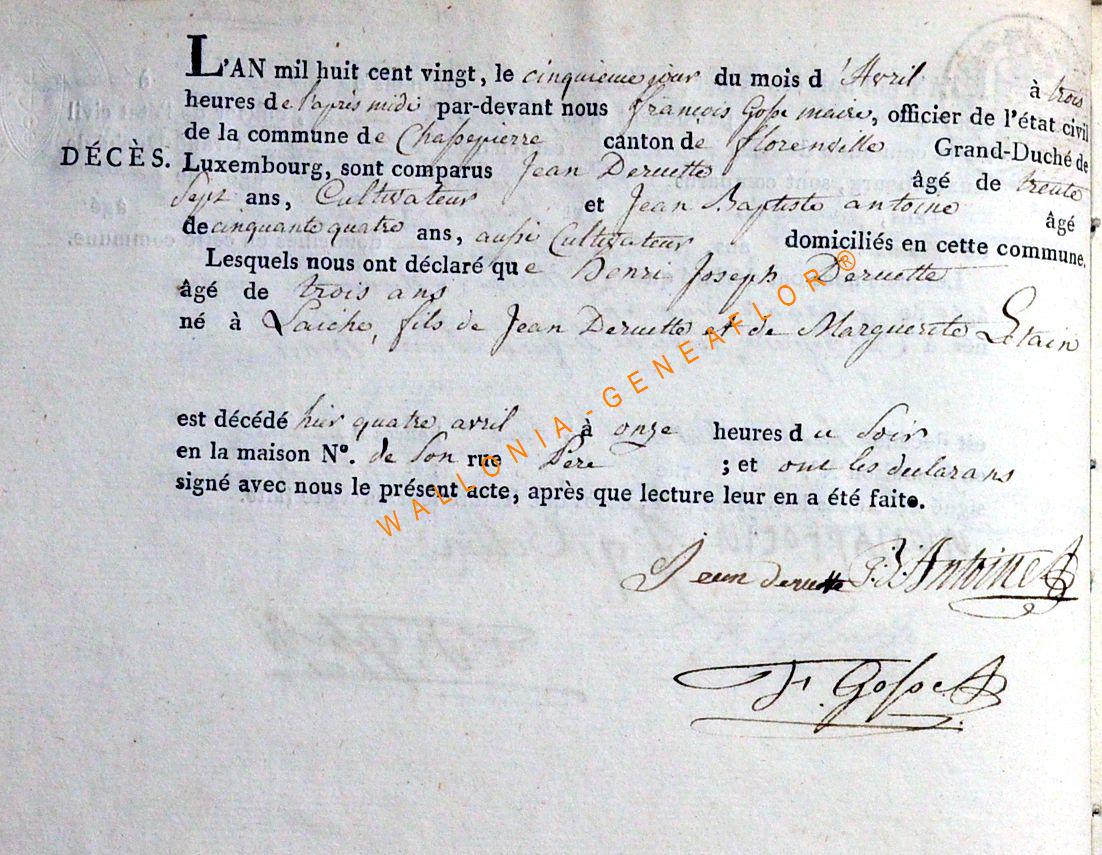 L'AN mil huit cent vingt, le cinquieme jour du mois d'Avril à trois
heures de l'après midi par-devant nous françois Gosse maire, officier de l'état civil
de la commune de Chassepierre canton de florenville Grand-Duché de
DÉCÈS. Luxembourg, sont comparus Jean Deruette âgé de trente
Sept ans, Cultivateur et Jean Baptiste antoine âgé
de cinquante quatre ans, aussi Cultivateur domiciliés en cette commune.
Lesquels nous ont déclaré que henri Joseph Deruette
âgé de trois ans
né à Laiche, fils de Jean Deruette et de Marguerite Letain
est décédé hier quatre avril à onze heures du Soir
en la maison N°. de Son rue Père ; et ont les declarans
signé avec nous le présent acte, après que lecture leur en a été faite.
Jean deruette J.B. Antoine
F. Gosse
WALLONIA-GENEAFLOR®